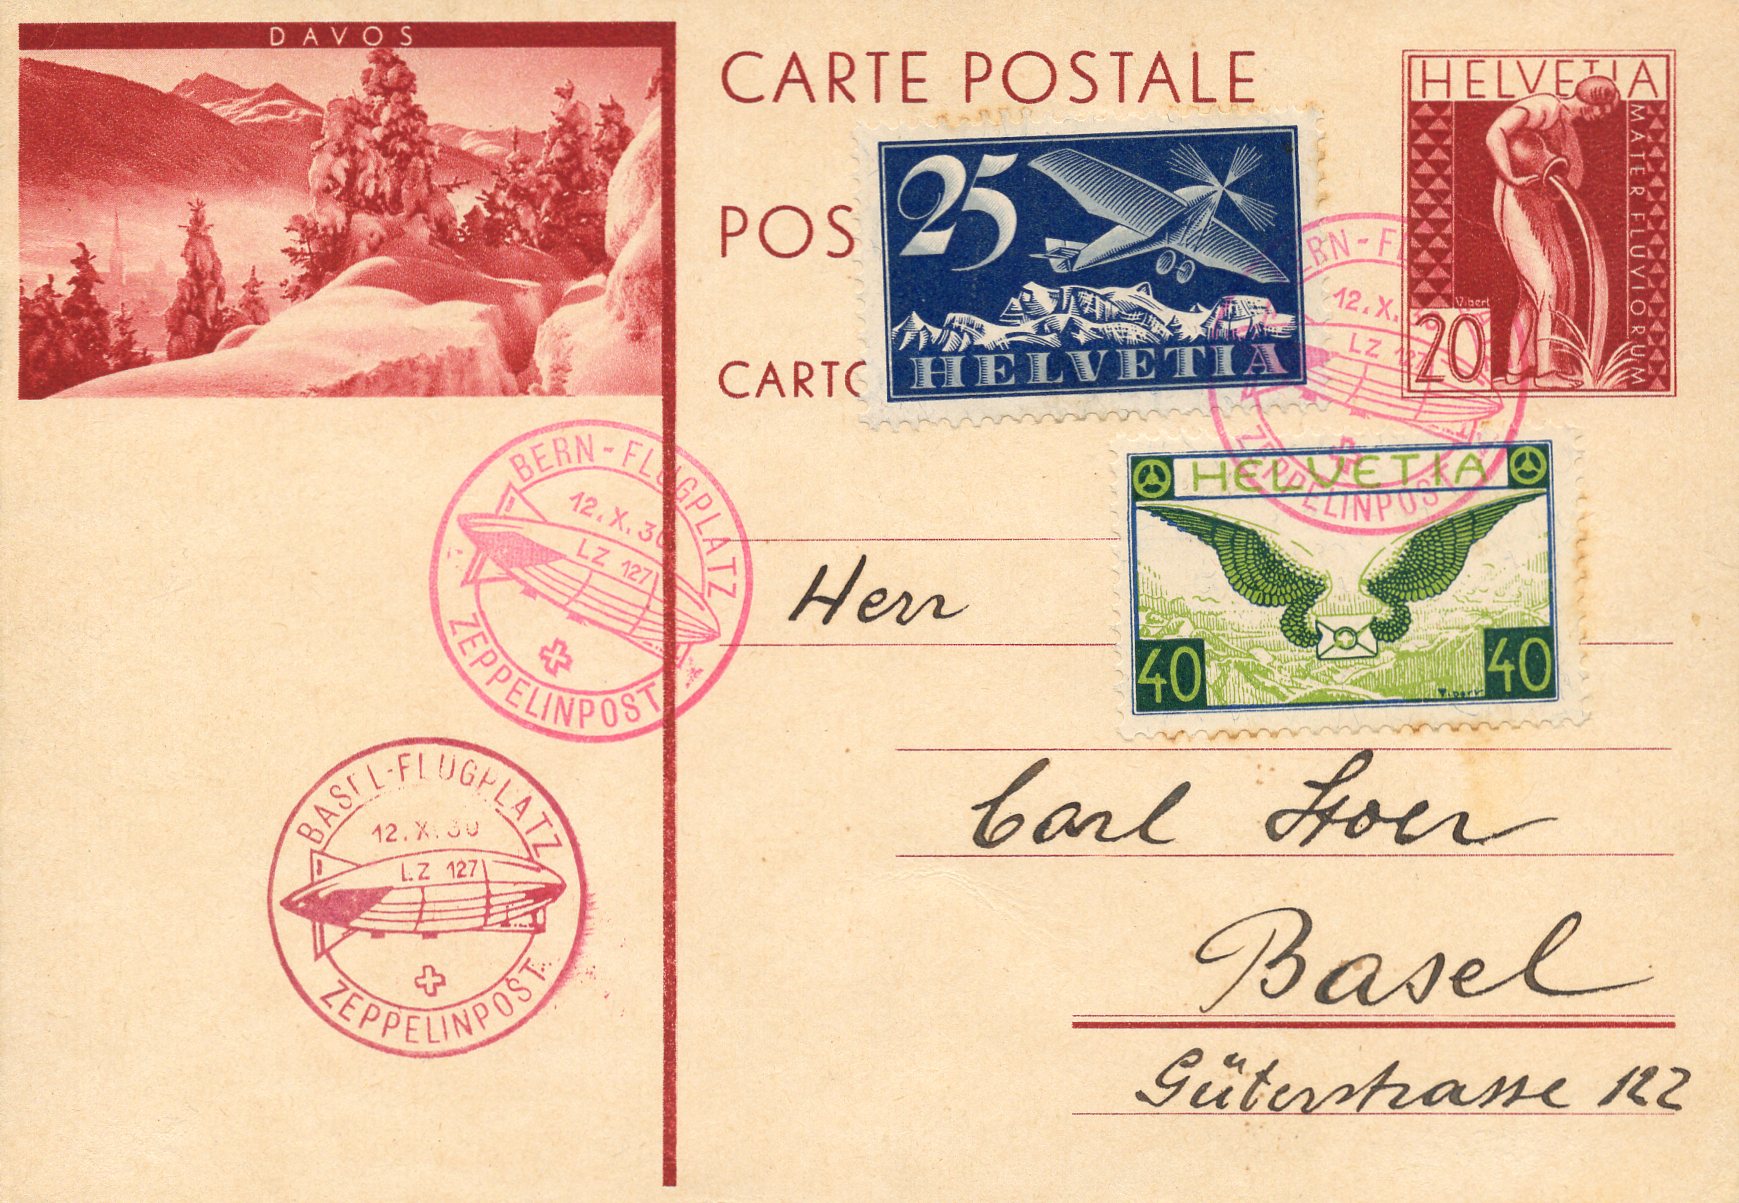 DAVOS
CARTE POSTALE
POS
CARTO
HELVETIA
MATER FLUVIORUM
Vibert
20
25
HELVETIA
BERN-FL
12.X.
LZ 127
ZEPPELINPOST
HELVETIA
40
40
BERN-FLUGPLATZ
12.X.30
LZ 127
ZEPPELINPOST
BASEL-FLUGPLATZ
12.X.30
LZ 127
ZEPPELINPOST
Herr
Carl Stoer
Basel
Güterstrasse 122